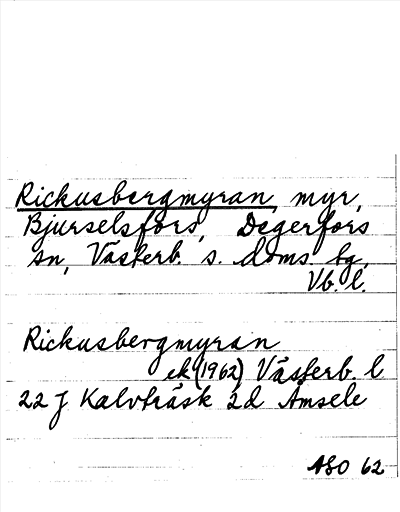 Rickusbergmyran, myr,
Bjurselsfors, Degerfors
sn, Västerb. s. doms. bg,
Vb. l.
Rickusbergmyran
ek (1962) Västerb. l
22 J Kalvträsk 2d Åmsele
ASO 62